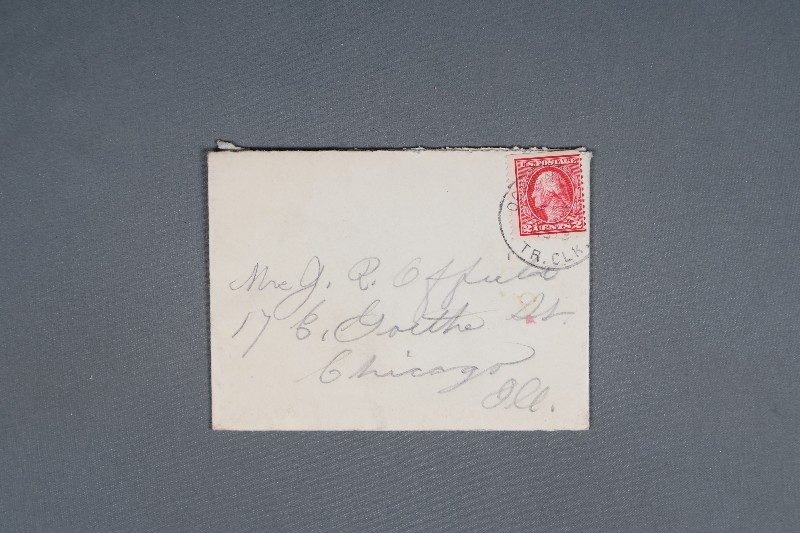 U.S. POSTAGE
2 CENTS 2
TR. CLK.
Mrs J. R. Offield
17 E. Goethe St.
Chicago
Ill.